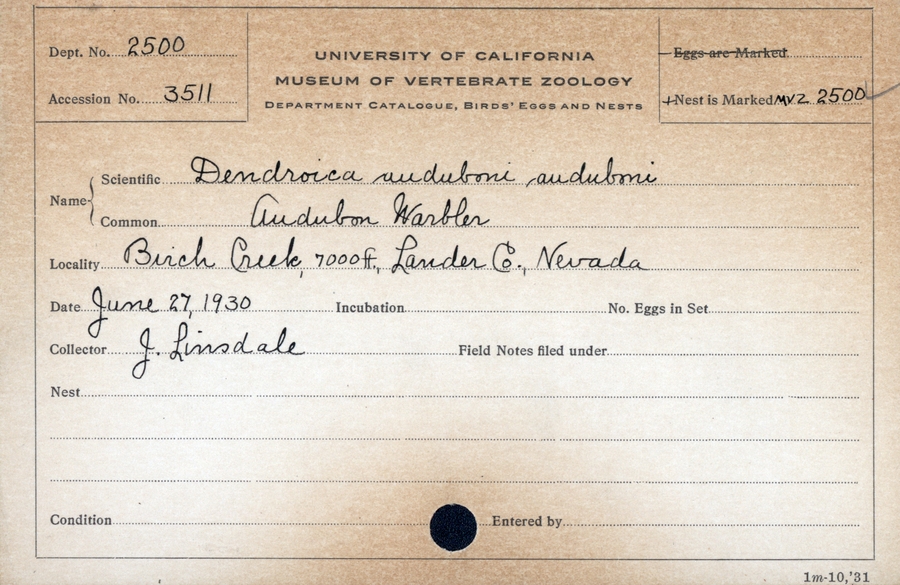 Dept. No. 2500
Accession No. 3511
UNIVERSITY OF CALIFORNIA
MUSEUM OF VERTEBRATE ZOOLOGY
DEPARTMENT CATALOGUE, BIRDS' EGGS AND NESTS
Eggs are Marked
Nest is Marked MVZ 2500
Name
Scientific Dendroica auduboni auduboni
Common Audubon Warbler
Locality Birch Creek, 7000ft., Lander Co., Nevada
Date June 27, 1930 Incubation No. Eggs in Set
Collector J. Linsdale Field Notes filed under
Nest
Condition Entered by
1m-10,'31